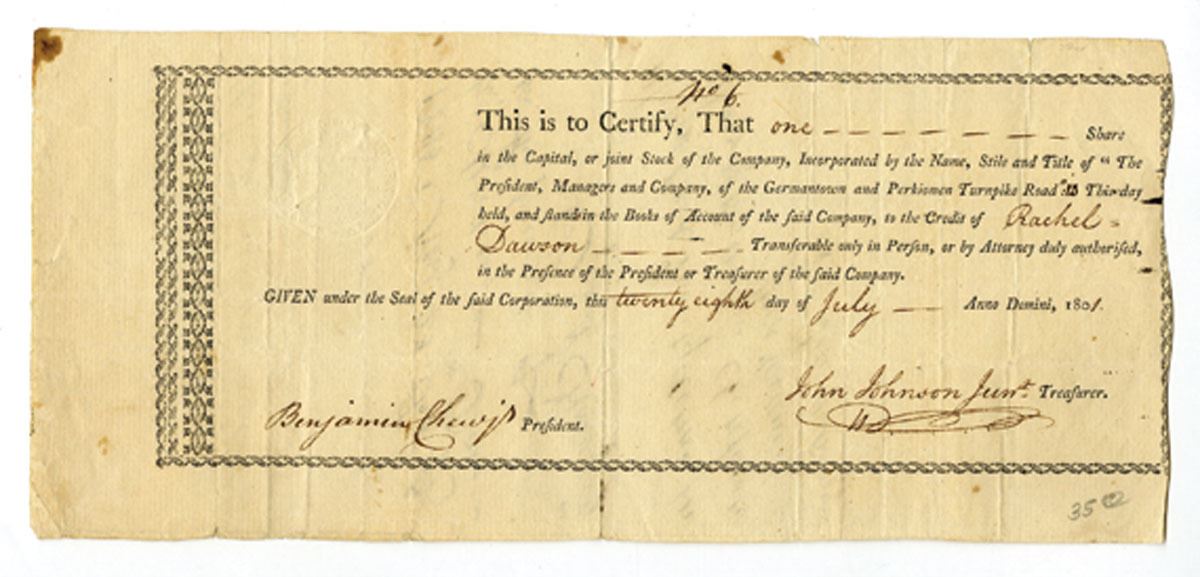 No 6.
This is to Certify, That one — — — — — — — Share
in the Capital, or joint Stock of the Company, Incorporated by the Name, Stile and Title of “ The
Preſident, Managers and Company, of the Germantown and Perkiomen Turnpike Road" Thisday
held, and ſtands in the Books of Account of the ſaid Company, to the Credit of Rachel
Dawson — — — — Transferable only in Perſon, or by Attorney duly authoriſed,
in the Preſence of the Preſident or Treaſurer of the ſaid Company.
GIVEN under the Seal of the ſaid Corporation, this twenty eighth day of July — Anno Domini, 1801.
John Johnson Junr. Treaſurer.
Benjamin Chew Jr Preſident.